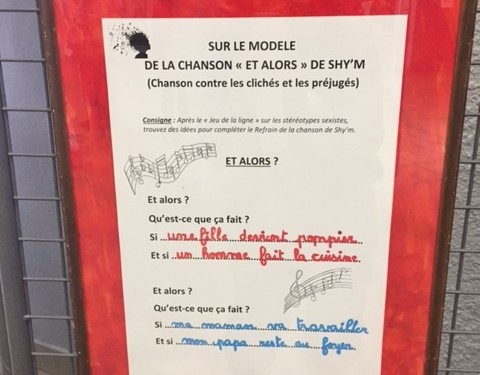 SUR LE MODELE
DE LA CHANSON « ET ALORS » DE SHY'M
(Chanson contre les clichés et les préjugés)
Consigne : Après le « Jeu de la ligne » sur les stéréotypes sexistes,
trouvez des idées pour compléter le Refrain de la chanson de Shy'm.
ET ALORS ?
Et alors ?
Qu'est-ce que ça fait ?
Si ...une fille....devient...pompier...
Et si ..un..homme...fait..la..cuisine.
Et alors ?
Qu'est-ce que ça fait ?
Si ....ma..maman...va...travailler
Et si ....mon..papa..reste..au..foyer.